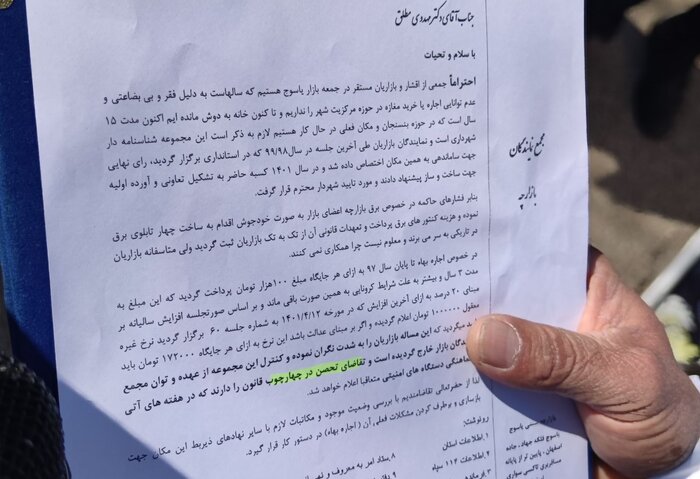 جناب آقای دکتر مهدی مطلق
با سلام و تحیات
احتراماً جمعی از اقشار و بازاریان مستقر در جمعه بازار یاسوج هستیم که سالهاست به دلیل فقر و بی بضاعتی و
عدم توانایی اجاره یا خرید مغازه در حوزه مرکزیت شهر را نداریم و تا کنون خانه به دوش مانده ایم اکنون مدت ۱۵
سال است که در حوزه بنسنجان و مکان فعلی در حال کار هستیم لازم به ذکر است این مجموعه شناسنامه دار
شهرداری است و نمایندگان بازاریان طی آخرین جلسه در سال ۹۹/۹۸ که در استانداری برگزار گردید، رای نهایی
جهت ساماندهی به همین مکان اختصاص داده شد و در سال ۱۴۰۱ کسبه حاضر به تشکیل تعاونی و آورده اولیه
جهت ساخت و ساز پیشنهاد دادند و مورد تایید شهردار محترم قرار گرفت.
بنابر فشارهای حاکمه در خصوص برق بازارچه اعضای بازار به صورت خودجوش اقدام به ساخت چهار تابلوی برق
نموده و هزینه کنتور های برق پرداخت و تعهدات قانونی آن از تک به تک بازاریان ثبت گردید ولی متاسفانه بازاریان
در تاریکی به سر می برند و معلوم نیست چرا همکاری نمی کنند.
در خصوص اجاره بهاء تا پایان سال ۹۷ به ازای هر جایگاه مبلغ ۱۰۰هزار تومان پرداخت گردید که این مبلغ به
مدت ۳ سال و بیشتر به علت شرایط کرونایی به همین صورت باقی ماند و بر اساس صورتجلسه افزایش سالیانه بر
مبنای ۲۰ درصد به ازای آخرین افزایش که در مورخه ۱۴۰۱/۴/۱۲ به شماره جلسه ۶۰ برگزار گردید نرخ غیره
معقول ۱۰۰۰۰۰۰ تومان اعلام گردیده و اگر بر مبنای عدالت باشد این نرخ به ازای هر جایگاه ۱۷۲۰۰۰ تومان باید
میگردید که این مساله بازاریان را به شدت نگران نموده و کنترل این مجموعه از عهده و توان مجمع
بازار خارج گردیده است و تقاضای تحصن در چهارچوب قانون را دارند که در هفته های آتی
دستگاه های امنیتی متعاقبا اعلام خواهد شد.
لذا از حضرتعالی تقاضامندیم با بررسی وضعیت موجود و مکاتبات لازم با سایر نهادهای ذیربط این مکان جهت
بازسازی و برطرف کردن مشکلات فعلی آن ( اجاره بهاء) در دستور کار قرار گیرد.
رونوشت:
۱.اطلاعات استان
۲.اطلاعات ۱۱۴ سپاه
۸.ستاد امر به معروف و
مجمع نمایندگان
بازارچه
یاسوج
یاسوج فلکه جهاد ، جاده
اصفهان ، پایین تر از پایانه
مسافربری تاکسی سواری